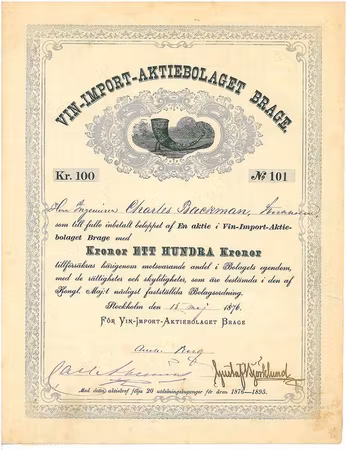 VIN-IMPORT-AKTIEBOLAGET BRAGE.
Kr. 100 № 101
Herr Ingeniören Charles Backman, Stockholm
som till fullo inbetalt beloppet af En aktie i Vin-Import-Aktie-
bolaget Brage med
Kronor ETT HUNDRA Kronor
tillförsäkras härigenom motsvarande andel i Bolagets egendom,
med de rättigheter och skyldigheter, som äro bestämda i den af
Kongl. Maj:t nådigst fastställda Bolagsordning.
Stockholm den 15 maj 1876.
FÖR VIN-IMPORT-AKTIEBOLAGET BRAGE
Berg
Gustaf Björklund
Med detta aktiebref följa 20 utdelningskuponger för åren 1876—1895.